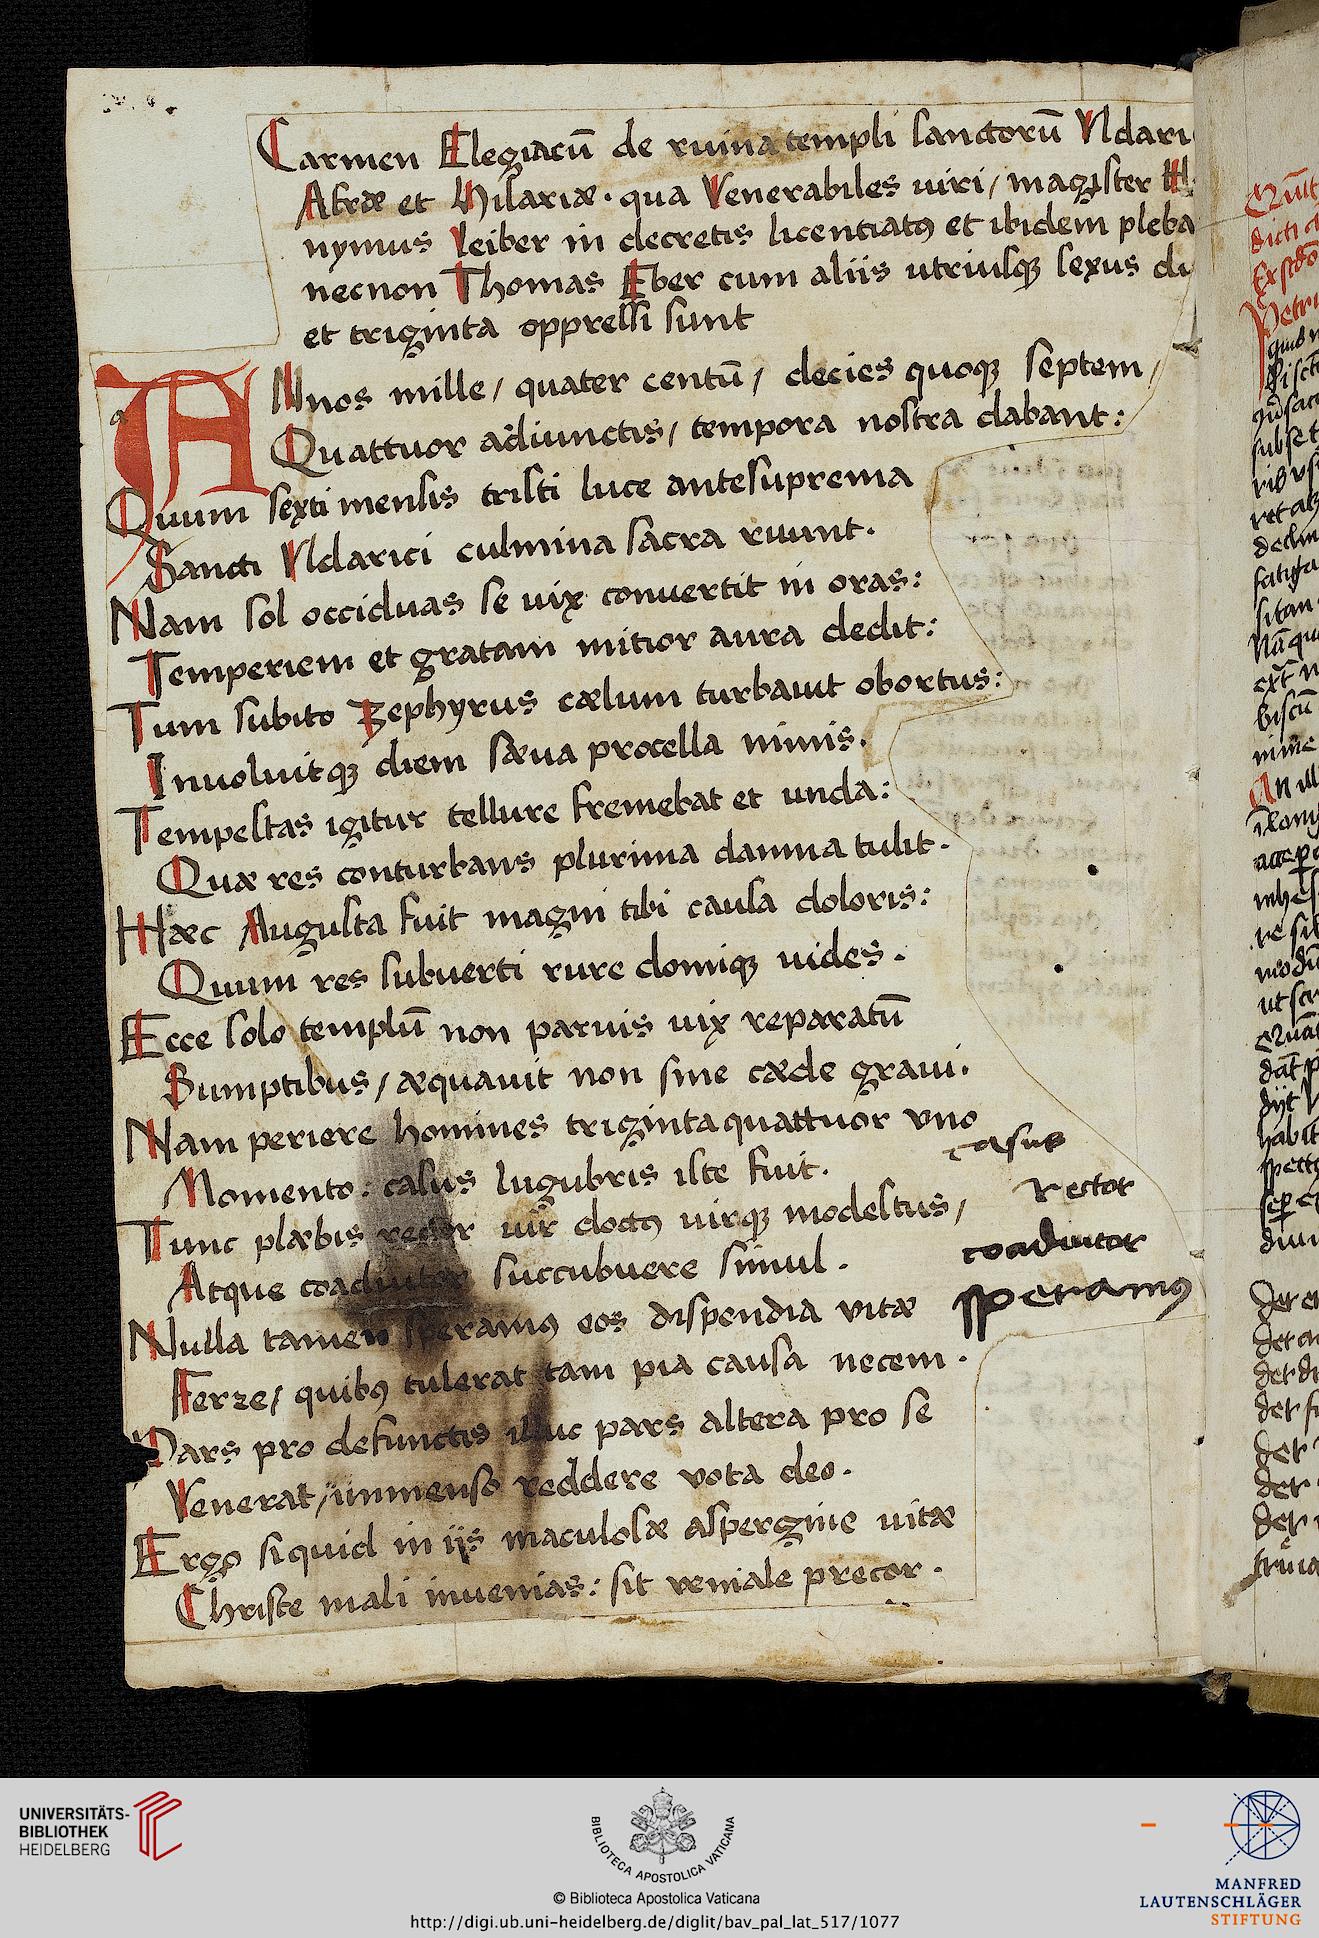 Carmen Elegiacū de ruina templi sanctorū Vldari
Afræ et Hilariæ. qua Venerabiles uiri/ magister H
nymus Leiber in decretis licentiatꝰ et ibidem pleba
necnon Thomas Eber cum aliis utriusqꝫ sexus du
et triginta oppressi sunt
a
ANnos mille/ quater centū/ decies quoqꝫ septem/
Quattuor adiunctis/ tempora nostra dabant:
Quum sexti mensis tristi luce antesuprema
Sancti Vldarici culmina sacra ruunt.
Nam sol occiduas se uix conuertit in oras:
Temperiem et gratam mitior aura dedit:
Tum subito Zephyrus cælum turbauit obortus:
Inuoluitqꝫ diem sæua procella nimis.
Tempestas igitur tellure fremebat et unda:
Quæ res conturbans plurima damna tulit.
Hæc Augusta fuit magni tibi causa doloris:
Quum res subuerti rure domiqꝫ uides.
Ecce solo templū non paruis uix reparatū
Sumptibus/ æquauit non sine cæde graui.
Nam periere homines triginta quattuor vno
Momento: casus lugubris iste fuit.
casus
Tunc plæbis rector uir doctꝰ uirqꝫ modestus/
rector
Atque coadiutor succubuere simul.
coadiutor
Nulla tamen speramꝰ eos dispendia vitæ
speramꝰ
Ferre/ quibꝰ tulerat tam pia causa necem.
Pars pro defunctis illuc pars altera pro se
Venerat/ immenso reddere vota deo.
Ergo siquid in iis maculosæ aspergine vitæ
Christe mali inuenias: sit veniale precor.
UNIVERSITÄTS-
BIBLIOTHEK
HEIDELBERG
BIBLIOTECA APOSTOLICA VATICANA
© Biblioteca Apostolica Vaticana
http://digi.ub.uni-heidelberg.de/diglit/bav_pal_lat_517/1077
MANFRED
LAUTENSCHLÄGER
STIFTUNG